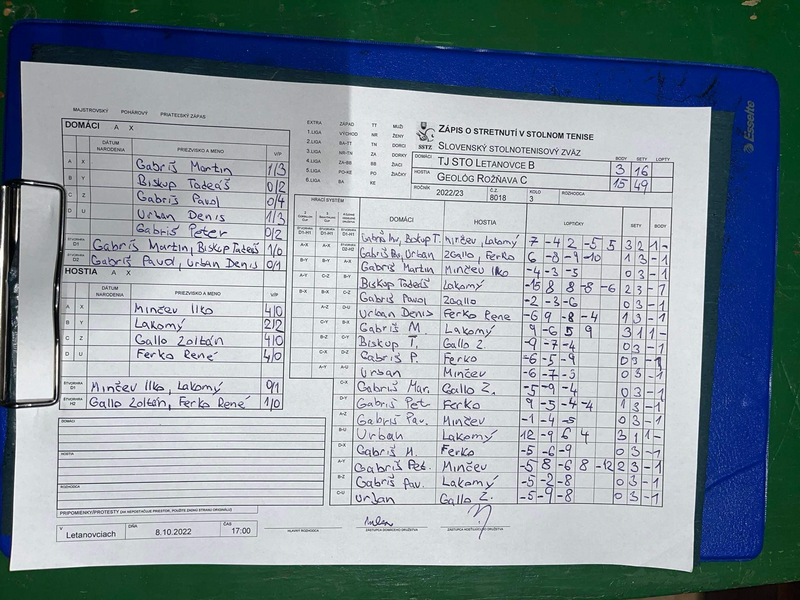 MAJSTROVSKÝ POHÁROVÝ PRIATEĽSKÝ ZÁPAS
DOMÁCI A X
DÁTUM NARODENIA PRIEZVISKO A MENO V/P
A X Gabriš Martin 1/3
B Y Biskup Tadeáš 0/2
C Z Gabriš Pavol 0/4
D U Urban Denis 1/3
Gabriš Peter 0/2
ŠTVORHRA D1 Gabriš Martin, Biskup Tadeáš 1/0
ŠTVORHRA D2 Gabriš Pavol, Urban Denis 0/1
HOSTIA A X
DÁTUM NARODENIA PRIEZVISKO A MENO V/P
A X Minčev Ilko 4/0
B Y Lakomý 2/2
C Z Gallo Zoltán 4/0
D U Ferko René 4/0
Minčev Ilko, Lakomý 0/1
ŠTVORHRA H2 Gallo Zoltán, Ferko René 1/0
DOMÁCI
HOSTIA
ROZHODCA
PRIPOMIENKY/PROTESTY (AK NEPOSTAČUJE PRIESTOR, POUŽITE ZADNÚ STRANU ORIGINÁLU)
V Letanovciach DŇA 8.10.2022 ČAS 17:00
EXTRA ZÁPAD TT MUŽI
1.LIGA VÝCHOD NR ŽENY
2.LIGA BA-TT TN DORCI
3.LIGA NR-TN ZA DORKY
4.LIGA ZA-BB BB ŽIACI
5.LIGA PO-KE PO ŽIAČKY
6.LIGA BA KE
SSTZ
ZÁPIS O STRETNUTÍ V STOLNOM TENISE
SLOVENSKÝ STOLNOTENISOVÝ ZVÄZ
BODY SETY LOPTY
DOMÁCI TJ STO LETANOVCE B 3 16
HOSTIA GEOLÓG ROŽŇAVA C 15 49
ROČNÍK 2022/23 Č.Z. 8018 KOLO 3 ROZHODCA
HRACÍ SYSTÉM
DOMÁCI HOSTIA LOPTIČKY SETY BODY
Gabriš M, Biskup T. Minčev, Lakomý 7 -4 2 -5 5 3 2 1 -
Gabriš Pav, Urban Gallo, Ferko 6 -8 -9 -10 1 3 - 1
Gabriš Martin Minčev Ilko -4 -3 -5 0 3 - 1
Biskup Tadeáš Lakomý -15 8 8 -8 -6 2 3 - 1
Gabriš Pavol Gallo -2 -3 -6 0 3 - 1
Urban Denis Ferko Rene -6 9 -8 -4 1 3 - 1
Gabriš M. Lakomý 9 -6 5 9 3 1 1 -
Biskup T. Gallo Z -9 -7 -4 0 3 - 1
Gabriš P. Ferko -6 -5 -9 0 3 - 1
Urban Minčev -6 -7 -3 0 3 - 1
Gabriš Mar. Gallo Z. -5 -9 -4 0 3 - 1
Gabriš Petr Ferko 9 -5 -4 -4 1 3 - 1
Gabriš Pav. Minčev -1 -4 -5 0 3 - 1
Urban Lakomý 12 -9 6 4 3 1 1 -
Gabriš M. Ferko -5 -6 -9 0 3 - 1
Gabriš Pet. Minčev -5 8 -6 8 -12 2 3 - 1
Gabriš Pav. Lakomý -5 -2 -8 0 3 - 1
Urban Gallo Z. -5 -9 -8 0 3 - 1
HLAVNÝ ROZHODCA ZÁSTUPCA DOMÁCEHO DRUŽSTVA ZÁSTUPCA HOSŤUJÚCEHO DRUŽSTVA
Esselte